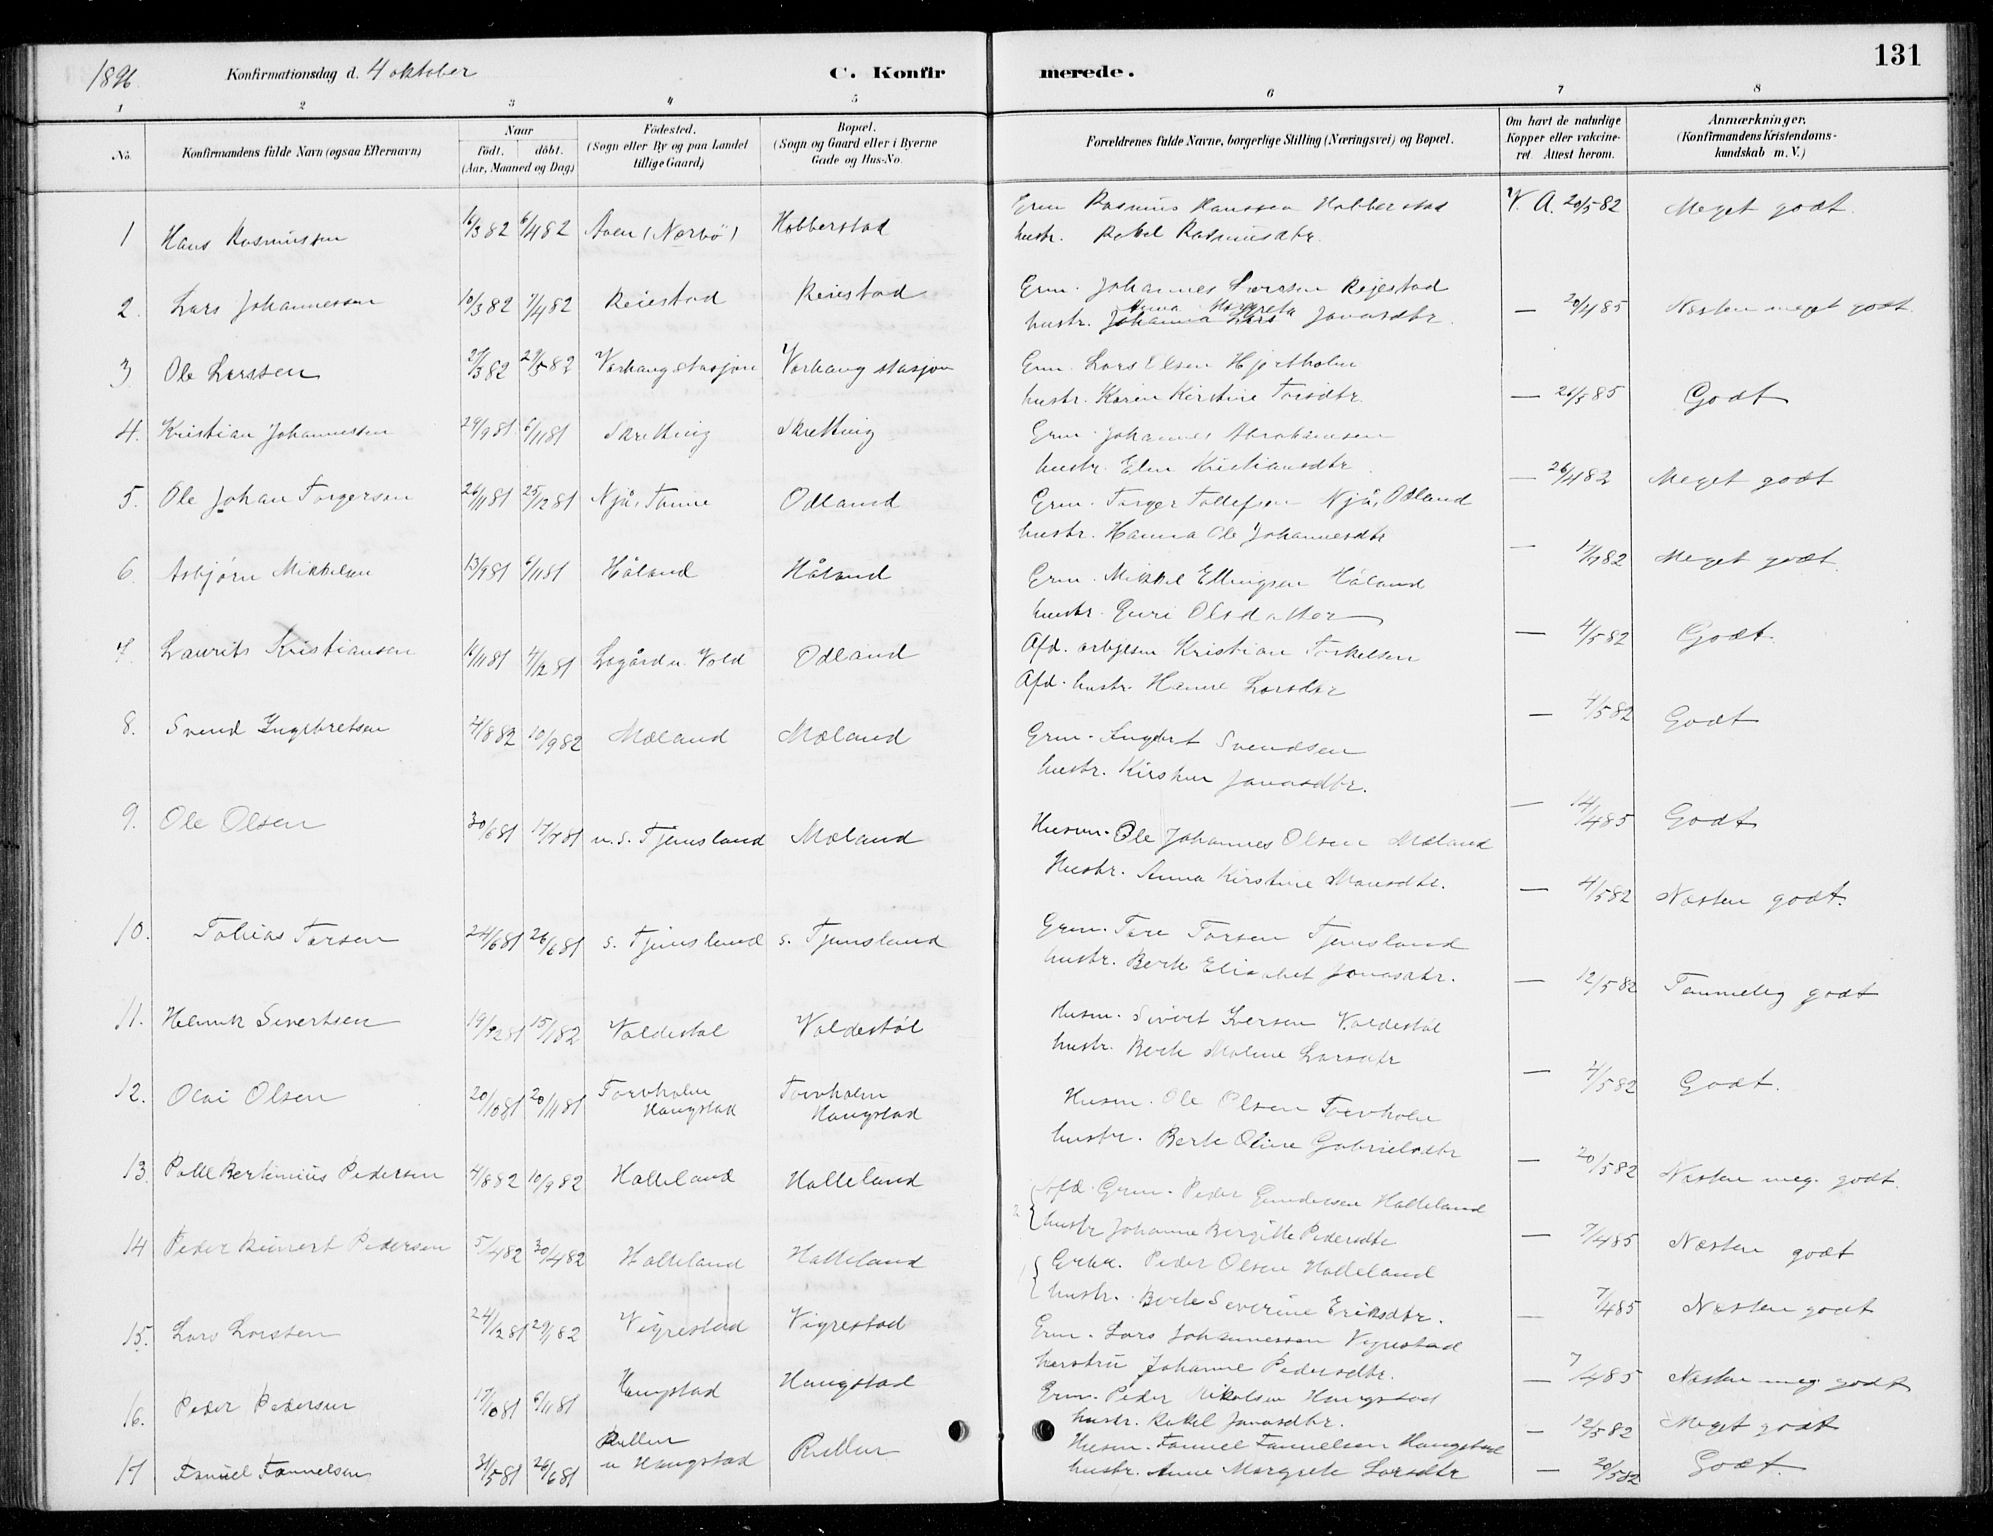 131
1896. Konfirmationsdag d. 4 oktober C. Konfirmerede.
1 2 3 4 5 6 7 8
No. Konfirmandens fulde Navn (ogsaa Efternavn) Naar født. døbt. (Aar, Maaned og Dag) Fødested. (Sogn eller By og paa Landet tillige Gaard) Bopæl. (Sogn og Gaard eller i Byerne Gade og Hus-No. Forældrenes fulde Navne, borgerlige Stilling (Næringsvei) og Bopæl. Om havt de naturlige Kopper eller vakcineret. Attest herom. Anmærkninger. (Konfirmandens Kristendomskundskab m. V.)
1 Hans Rasmussen 16/3 82 6/4 82 Aven (Nærbø) Hobberstad Grm Rasmus Hanssen Hobberstad V. A. 20/5 82 Meget godt.
hustr. Rakel Rasmusdtr.
2. Lars Johannessen 10/3 82 7/4 82 Reiestad Reiestad Grm. Johannes Larssen Rejestad — 20/4 85 Næsten meget godt.
hustr. Anna Margreta Jonasdtr.
3 Ole Larssen 82 82 Varhaug stasjon Varhaug stasjon Grm. Lars Olsen Hjortholm — 26/5 85 Godt
hustr. Karen Kirstine Torsdtr.
4. Kristian Johannessen 29/9 81 6/11 81 Skretting Skretting Grm. Johannes Abrahamsen — 26/4 82 Meget godt
hustr. Elen Kristiansdtr.
5. Ole Johan Torgersen 26/11 81 25/12 81 Njå, Time Odland Grm. Torger Tollefsen Njå, Odland — 82 Meget godt.
hustr. Hanna Ole Johannesdtr
6. Asbjørn Mikkelsen 13/9 81 6/11 81 Håland Håland Grm. Mikkel Ellingsen Håland — 4/5 82 Godt.
hustr. Guri Olsdatter
7. Laurits Kristiansen 16/11 81 4/12 81 Legård u. Vold Odland Afd. arbejdsm Kristian Torkelsen — 4/5 82 Godt
Afd. hustr. Hanne Larsdtr
8. Svend Ingebretsen 4/8 82 10/9 82 Mæland Mæland Grm. Ingbrt Svendsen — 14/4 85 Godt
hustr. Kirsten Jonasdtr.
9. Ole Olsen 30/6 81 17/7 81 u. s. Tjemsland Mæland Husm. Ole Johannes Olsen Mæland — 4/5 82 Næsten godt.
Hustr. Anna Kirstine Monsdtr.
10. Tobias Torsen 24/6 81 26/6 81 s. Tjemsland s. Tjemsland Grm. Tore Torsen Tjemsland — 12/5 82 Temmelig godt
hustr. Berte Elisabet Jonasdtr.
11. Henrik Sivertsen 19/12 81 15/1 82 Valdestøl Valdestøl Husm. Sivert Larsen Valdestøl — 4/5 82 Godt.
hustr. Berte Maline Larsdtr
12. Olai Olsen 20/10 81 20/11 81 Torvholm Haugstad Torvholm Haugstad Husm. Ole Olsen Torvholm — 20/5 82 Næsten meg. godt.
hustr. Berte Oline Gabrielsdtr
13. Palle Bertinius Pedersen 4/8 82 10/9 82 Halleland Halleland 2 { Afd. Grm. Peder Gundersen Halleland — 7/4 85 Næsten godt
hustr Johanne Bergitte Pedersdtr
14 Peder Reinert Pedersen 5/4 82 30/4 82 Halleland Halleland 1 { Grbr. Peder Olsen Halleland — 7/4 85 Næsten godt
hustr. Berte Severine Eriksdtr.
15. Lars Larsten 24/12 81 29/1 82 Vigrestad Vigrestad Grm. Lars Johannessen Vigrestad — 7/4 85 Næsten meg godt
hustru Johanne Pedersdtr.
16. Peder Pedersen 17/10 81 6/11 81 Haugstad Haugstad Grm. Peder Nikolsen Haugstad — 12/5 82 Meget godt
hustr. Rakel Jonasdtr.
17 Fanuel Fanuelsen 31/5 81 26/6 81 Rullen u Haugstad Rullen Husm. Fanuel Fanuelsen Haugstad — 20/5 82 Godt.
hustr. Anne Margrete Larsdtr